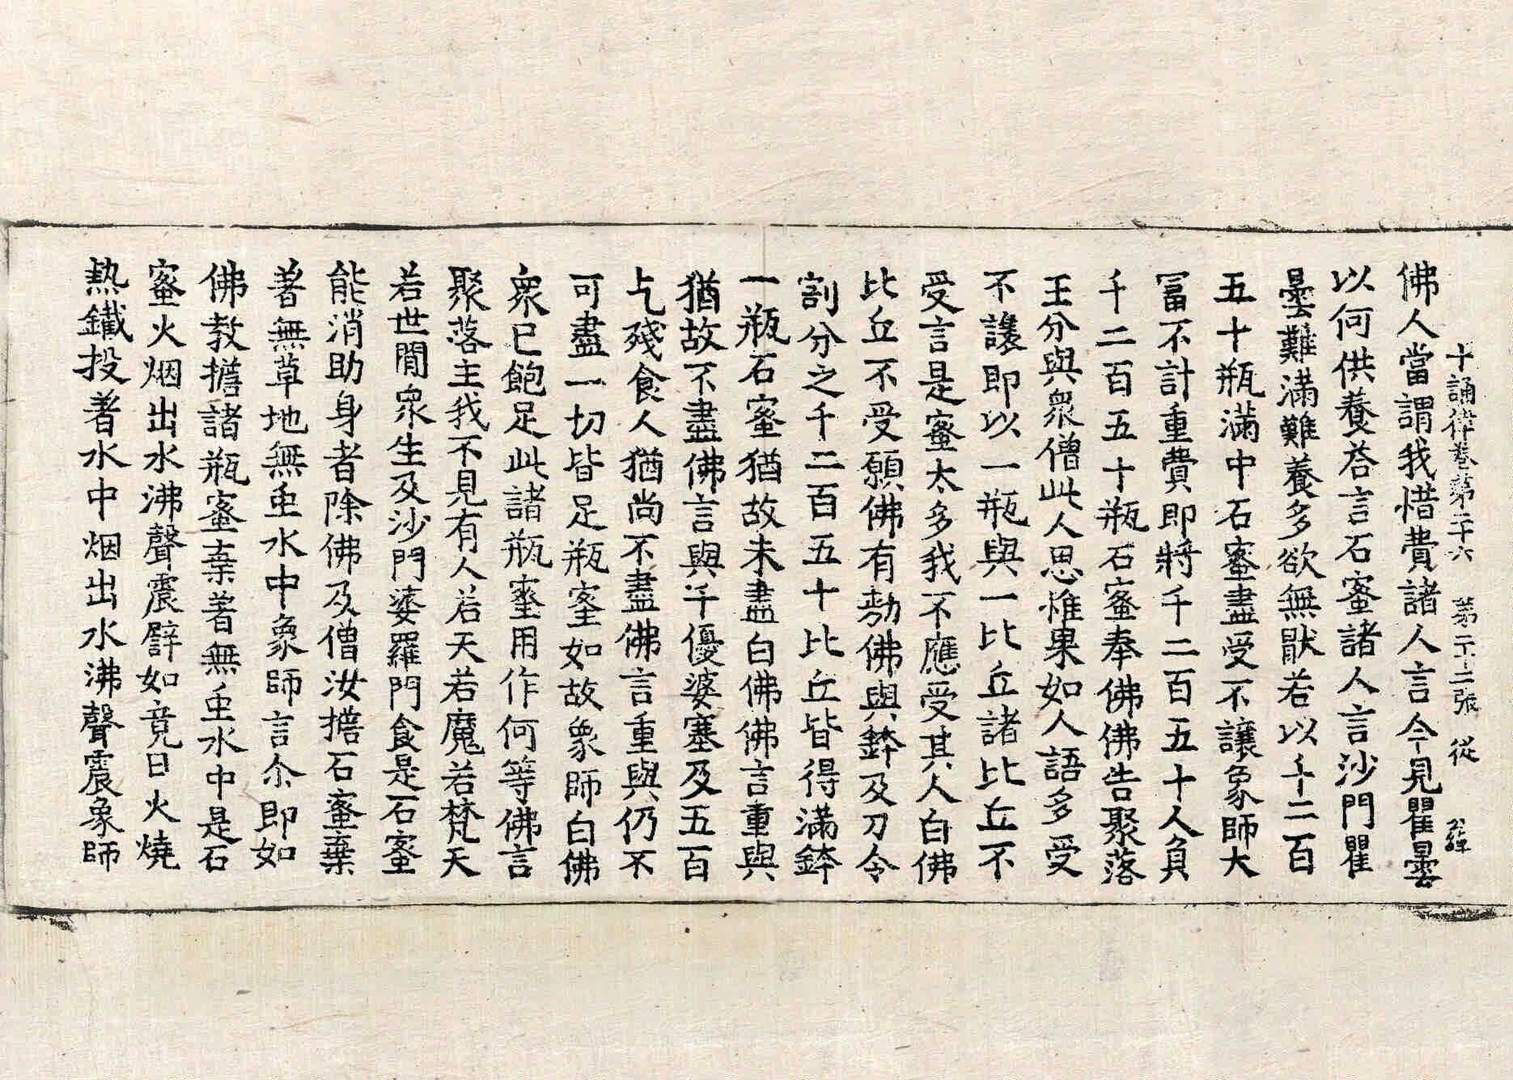 十誦律卷第二十六 第二十二張 從
佛人當謂我惜費諸人言今見瞿曇
以何供養荅言石蜜諸人言沙門瞿
曇難滿難養多欲無猒若以千二百
五十瓶滿中石蜜盡受不讓象師大
冨不計重費即將千二百五十人負
千二百五十瓶石蜜奉佛佛告聚落
主分與衆僧此人思惟果如人語多受
不讓即以一瓶與一比丘諸比丘不
受言是蜜太多我不應受其人白佛
比丘不受願佛有勑佛與鉢及刀令
割分之千二百五十比丘皆得滿鉢
一瓶石蜜猶故未盡白佛佛言重與
猶故不盡佛言與千優婆塞及五百
乞殘食人猶尚不盡佛言重與仍不
可盡一切皆足瓶蜜如故象師白佛
衆已飽足此諸瓶蜜用作何等佛言
聚落主我不見有人若天若魔若梵天
若世閒衆生及沙門婆羅門食是石蜜
能消助身者除佛及僧汝擔石蜜棄
著無草地無虫水中象師言尒即如
佛教擔諸瓶蜜棄著無虫水中是石
蜜火烟出水沸聲震譬如竟日火燒
熱鐵投著水中烟出水沸聲震象師